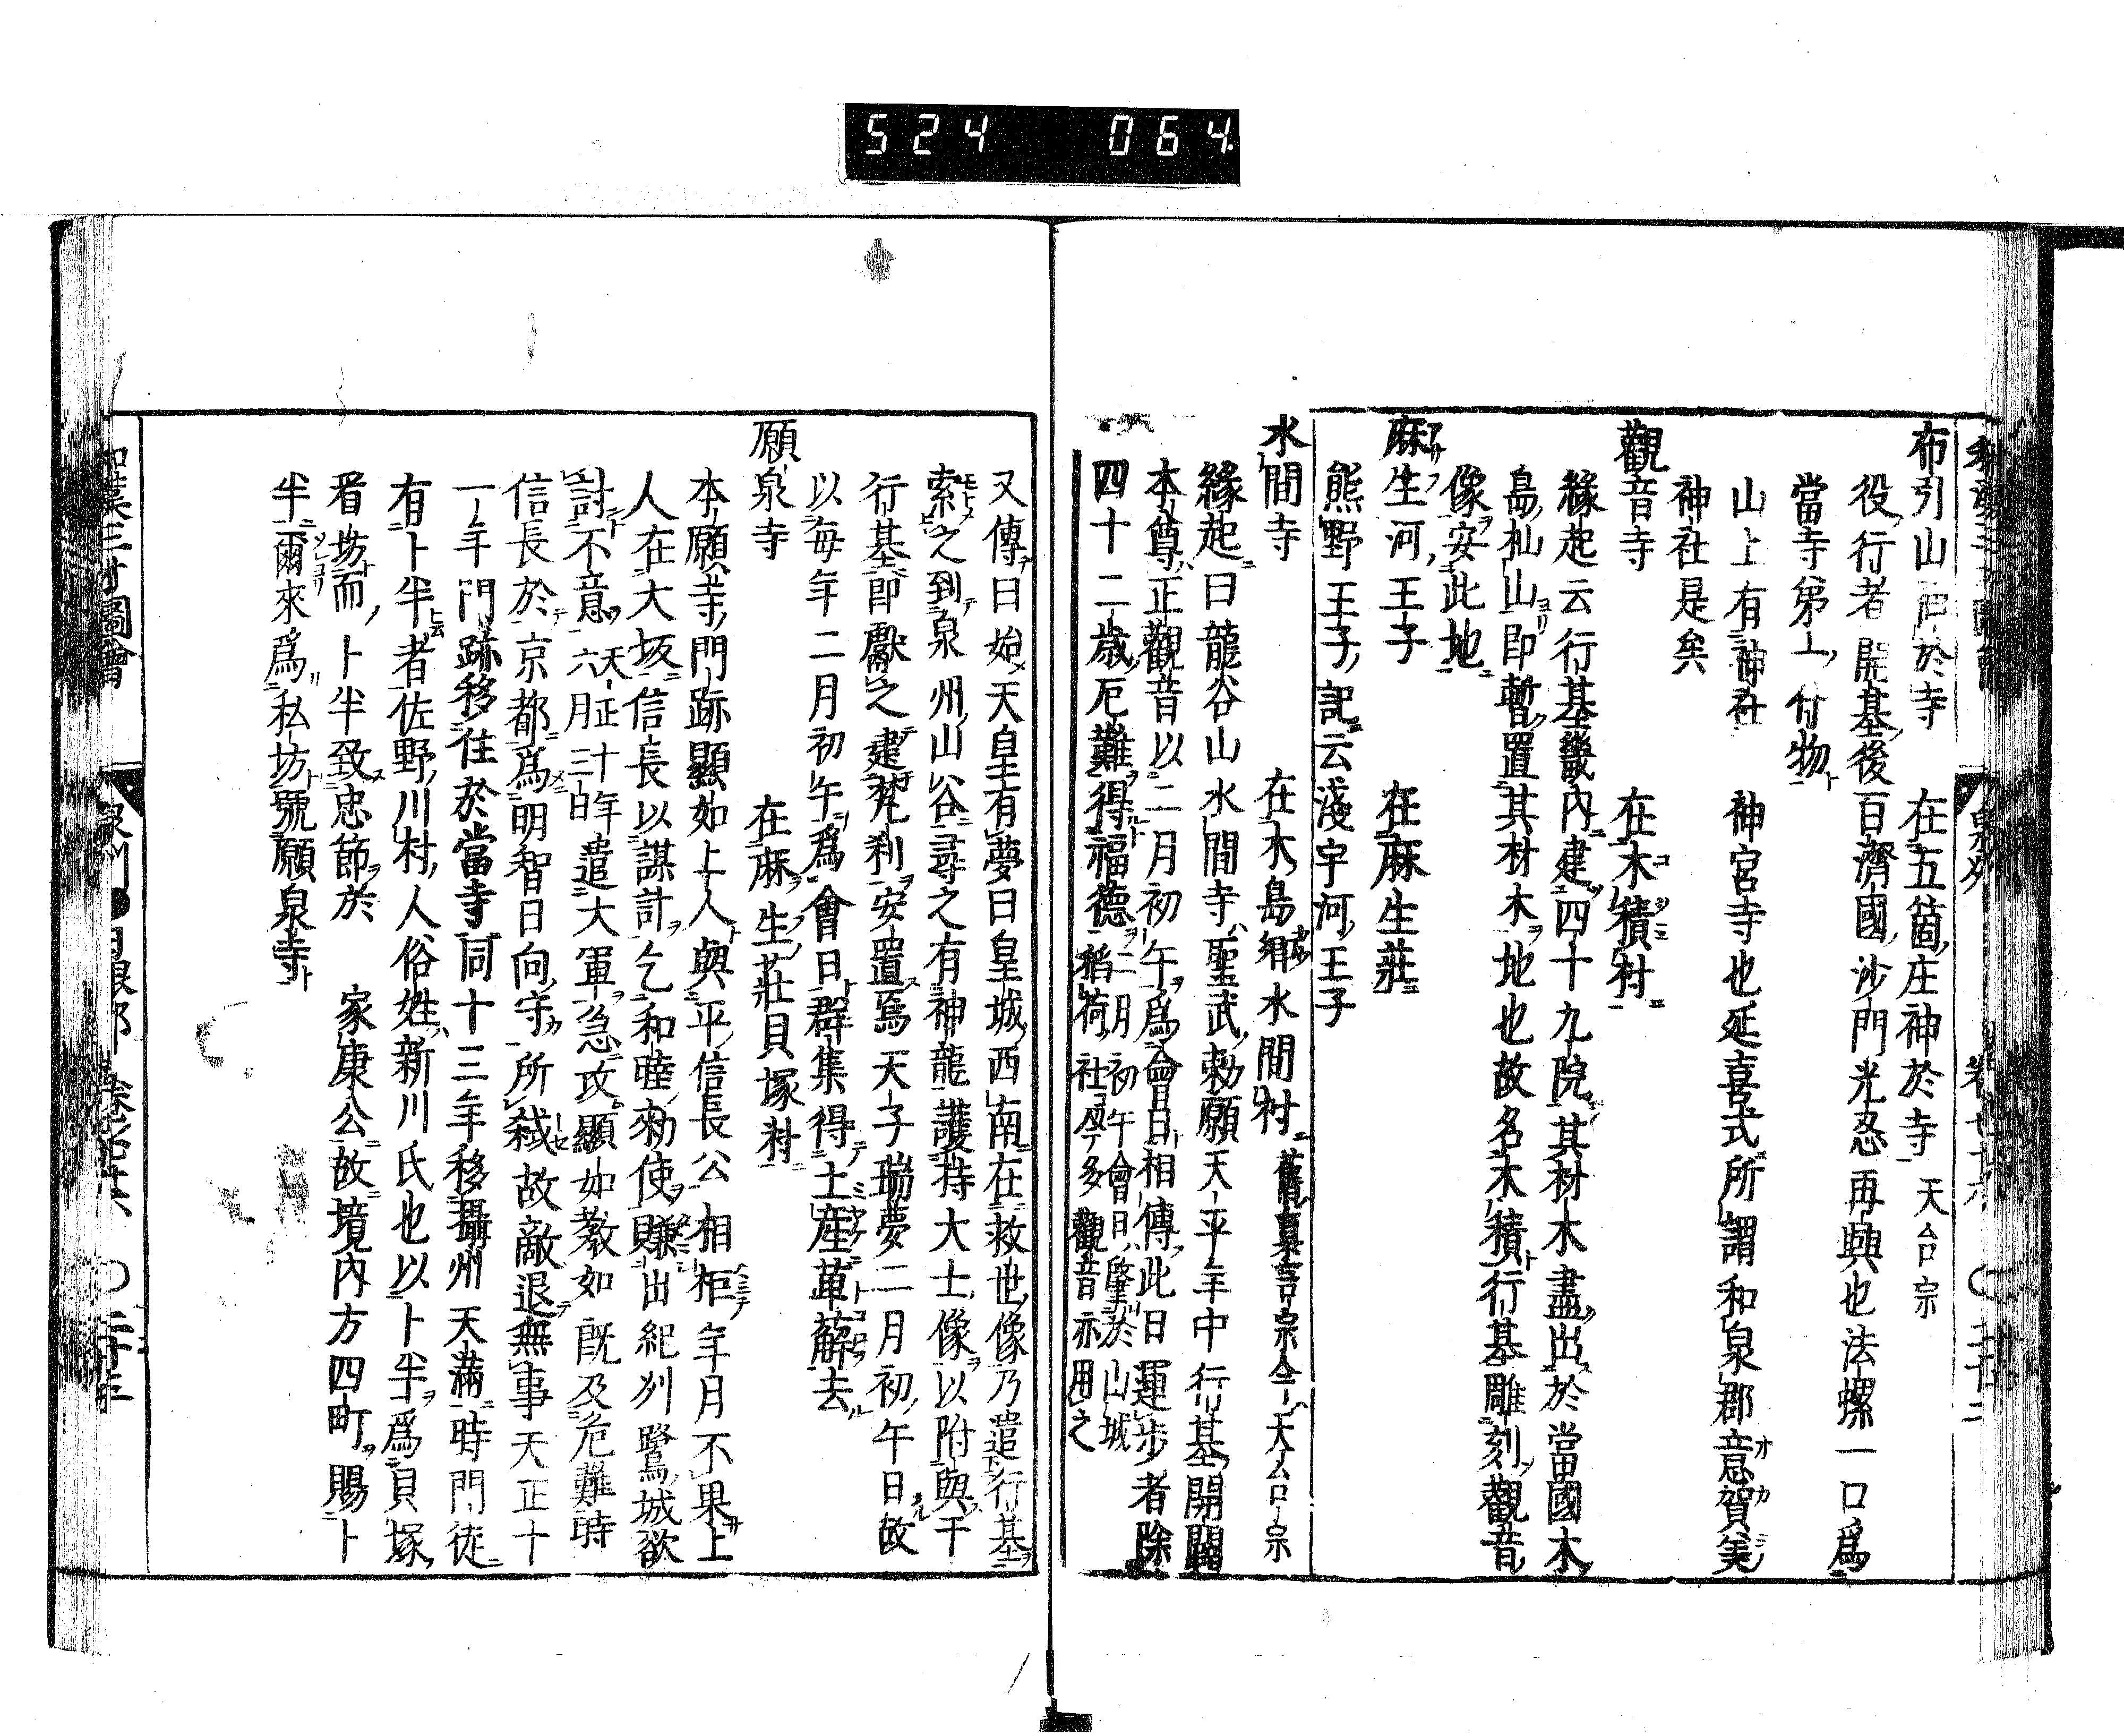 524 064
布引山神於寺 在五箇庄神於寺 天台宗
役行者開基後百濟國沙門光忍再興也法螺一口爲
當寺第一什物
山上有神社 神宮寺也延喜式所謂和泉郡意賀美
神社是矣
觀音寺 在木積村
緣起云行基畿內建四十九院其材木盡出於當國木
島杣山即暫置其材木地也故名木積行基雕刻觀音
像安此地
麻生河王子 在麻生莊
熊野王子記云淺宇河王子
水間寺 在木島鄉水間村 舊眞言宗今天台宗
緣起曰龍谷山水間寺聖武勅願天平年中行基開闢
本尊正觀音以二月初午爲會日相傳此日運步者除
四十二歳厄難得福德 二月初午會日肇於山城
稻荷社今多觀音亦用之
又傳曰始天皇有夢曰皇城西南在救世像乃遣行基
索之到泉州山谷尋之有神龍護持大士像以附與于
行基即獻之建梵刹安置焉天子瑞夢二月初午日故
以每年二月初午爲會日群集得土產革觧去
願泉寺 在麻生莊貝塚村
本願寺門跡顯如上人與平信長公相柜年月不果上
人在大坂信長以謀計乞和睦勅使賺出紀州鷺城欲
討不意 天正十年六月三日 遣大軍急攻顯如教如既及危難時
信長於京都爲明智日向守所弑故敵退無事天正十
一年門跡移住於當寺同十三年移攝州天滿時門徒
有卜半者佐野川村人俗姓新川氏也以卜半爲貝塚
看坊而卜半致忠節於 家康公故境內方四町賜卜
半爾來爲私坊號願泉寺
和漢三才圖會 泉州 日根郡 卷七十六 〇二十三